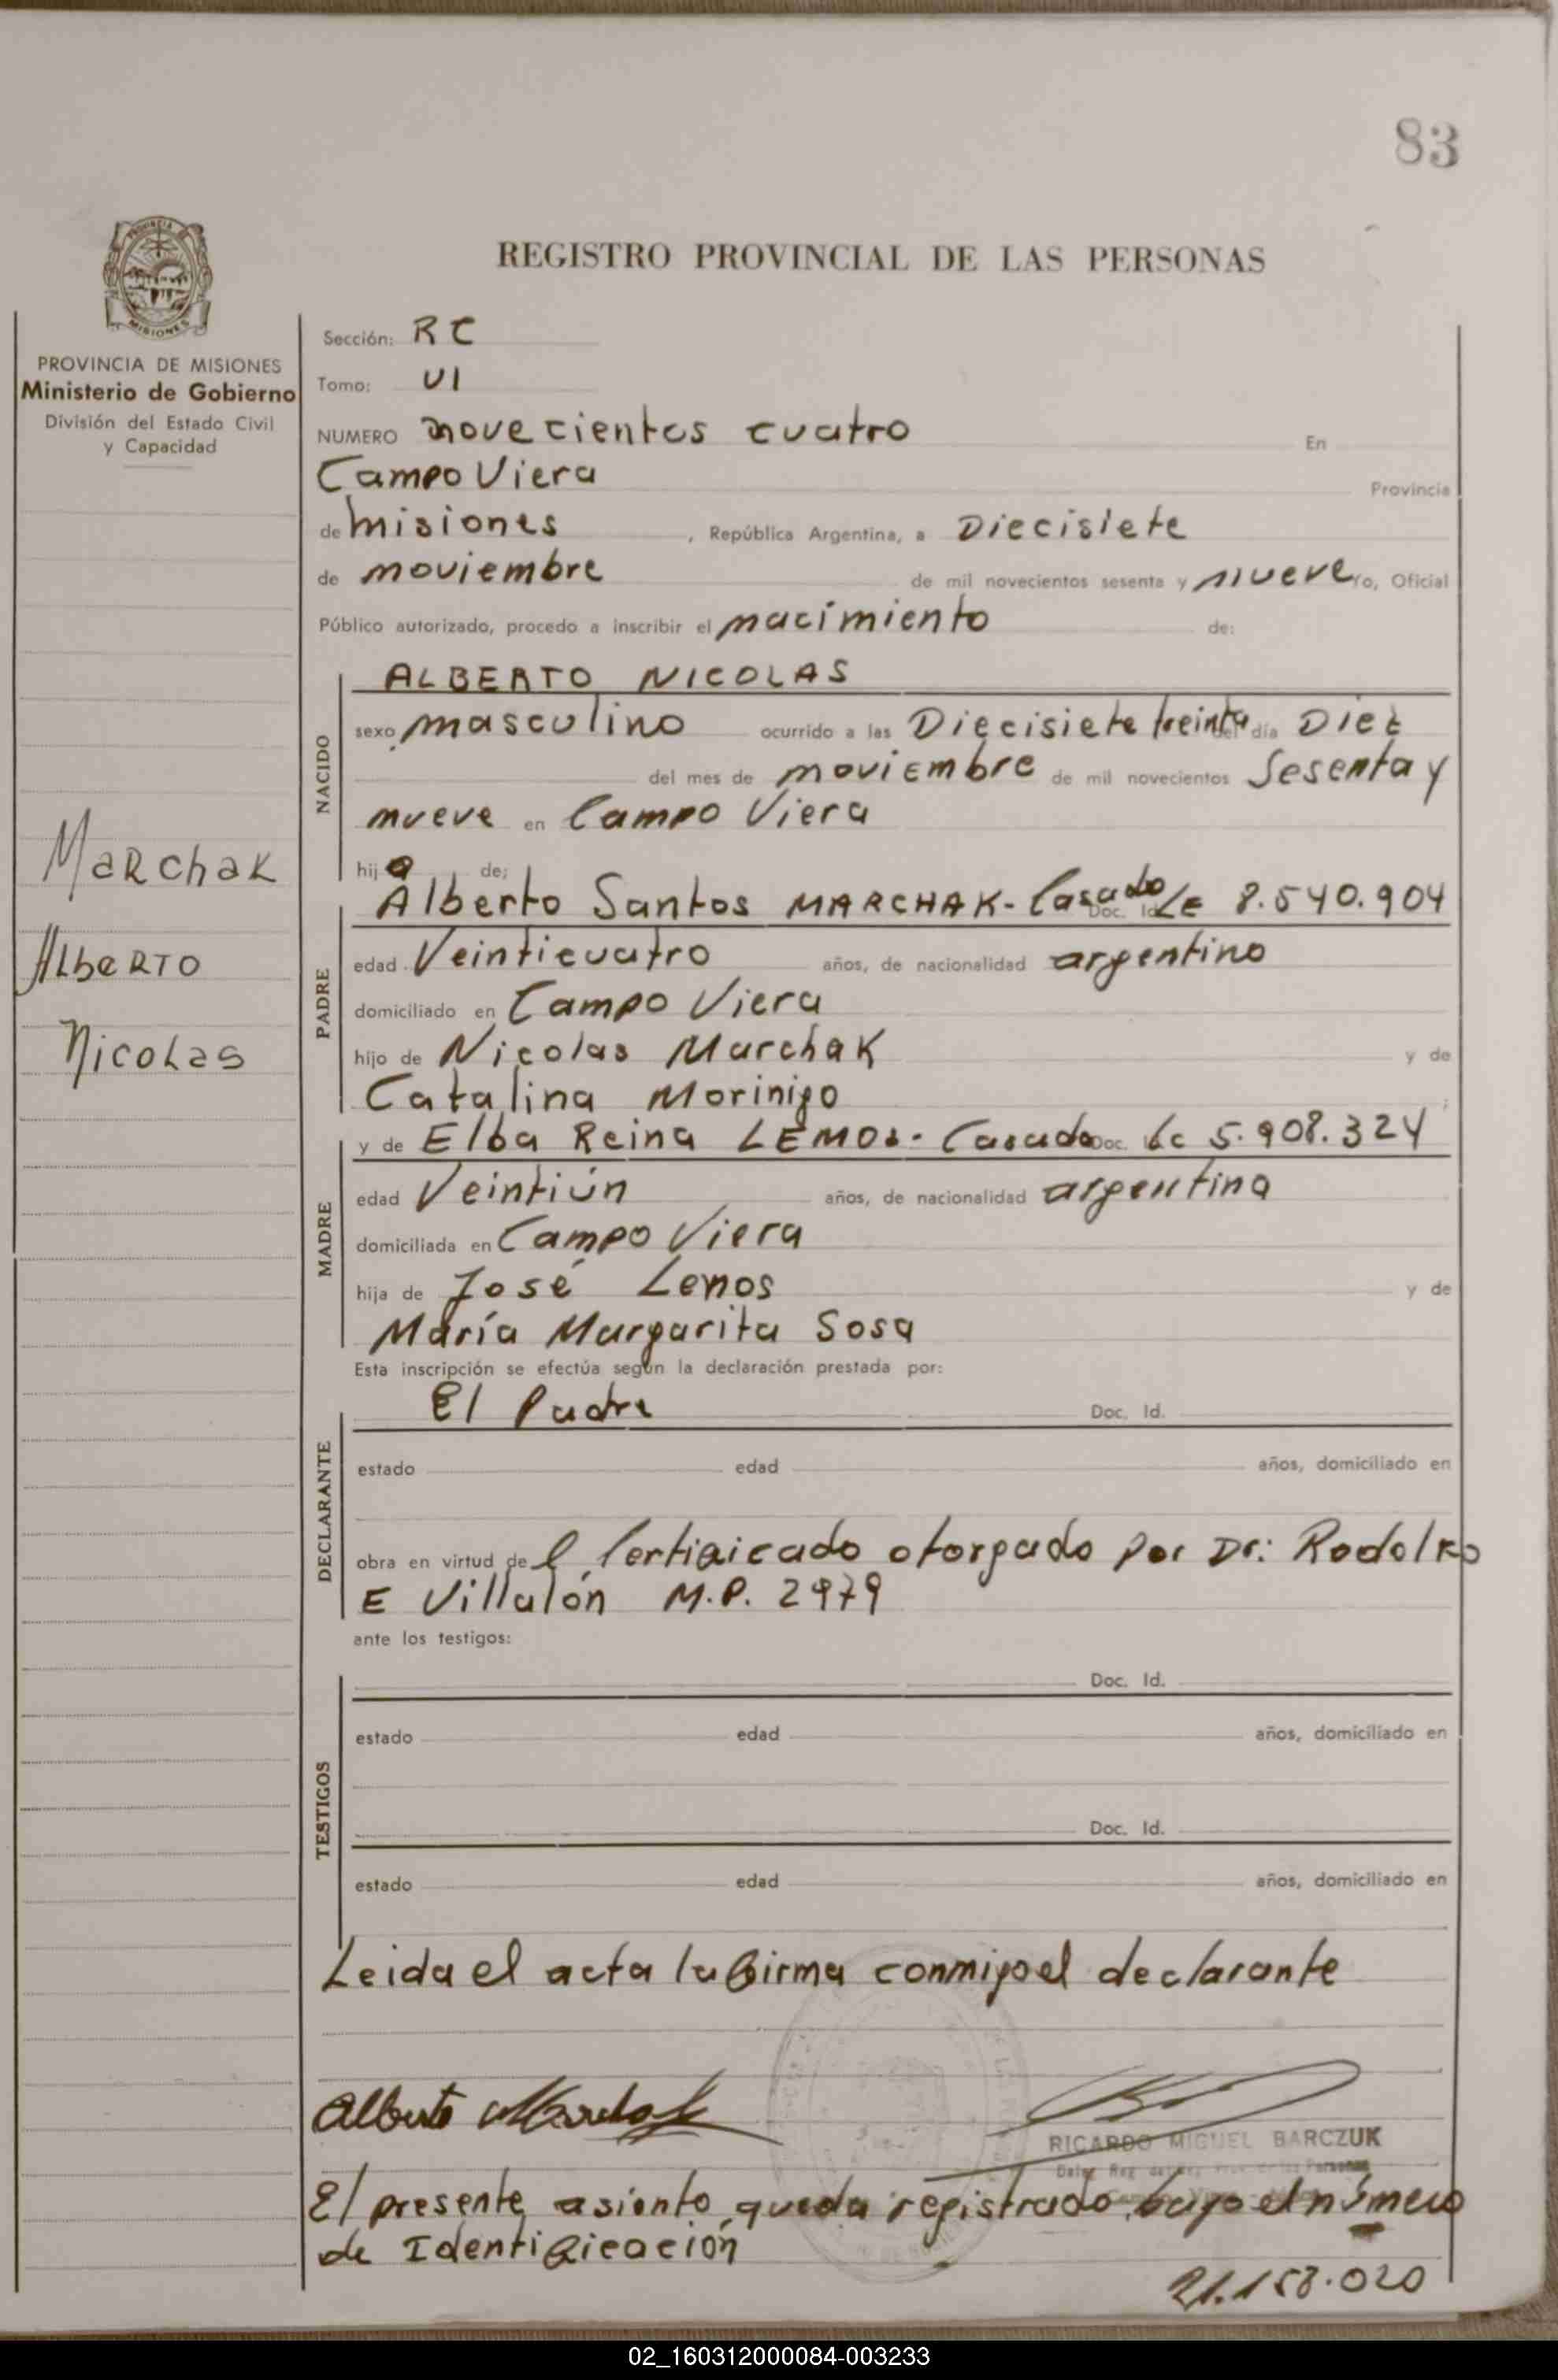 83
REGISTRO PROVINCIAL DE LAS PERSONAS
PROVINCIA DE MISIONES
Ministerio de Gobierno
División del Estado Civil
y Capacidad
Marchak
Alberto
Nicolas
Sección: RC
Tomo: VI
NUMERO novecientos cuatro En
Campo Viera Provincia
de misiones, República Argentina, a Diecisiete
de noviembre de mil novecientos sesenta y nueve yo, Oficial
Público autorizado, procedo a inscribir el nacimiento de:
NACIDO
ALBERTO NICOLAS
sexo masculino ocurrido a las Diecisiete treinta del día Diez
del mes de noviembre de mil novecientos Sesenta y
nueve en Campo Viera
hijo de;
PADRE
Alberto Santos MARCHAK- Casado Doc. Id. LE 8.540.904
edad Veinticuatro años, de nacionalidad argentino
domiciliado en Campo Viera
hijo de Nicolas Marchak y de
Catalina Morinigo
MADRE
y de Elba Reina LEMOS- Casada Doc. 5.908.324
edad Veintiún años, de nacionalidad argentina
domiciliada en Campo Viera
hija de José Lemos y de
María Margarita Sosa
Esta inscripción se efectúa según la declaración prestada por:
DECLARANTE
El Padre Doc. Id.
estado edad años, domiciliado en
obra en virtud del Certificado otorgado por Dr: Rodolfo
E Villalón M.P. 2979
ante los testigos:
TESTIGOS
Doc. Id.
estado edad años, domiciliado en
Doc. Id.
estado edad años, domiciliado en
Leida el acta la firma conmigo el declarante
Alberto Marchak
RICARDO MIGUEL BARCZUK
El presente asiento, queda registrado, bajo el número
de Identificación
21.158.020
02_160312000084-003233